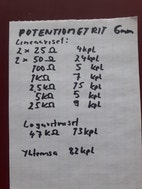 POTENTIOMETRIT 6mm
Lineaariset:
2 x 25 Ω 4kpl
2 x 50 Ω 24kpl
100 Ω 5 kpl
1KΩ 7 kpl
2,5KΩ 15 kpl
5KΩ 5 kpl
25KΩ 9 kpl
Logaritmiset
47KΩ 13kpl
Yhteensä 82kpl